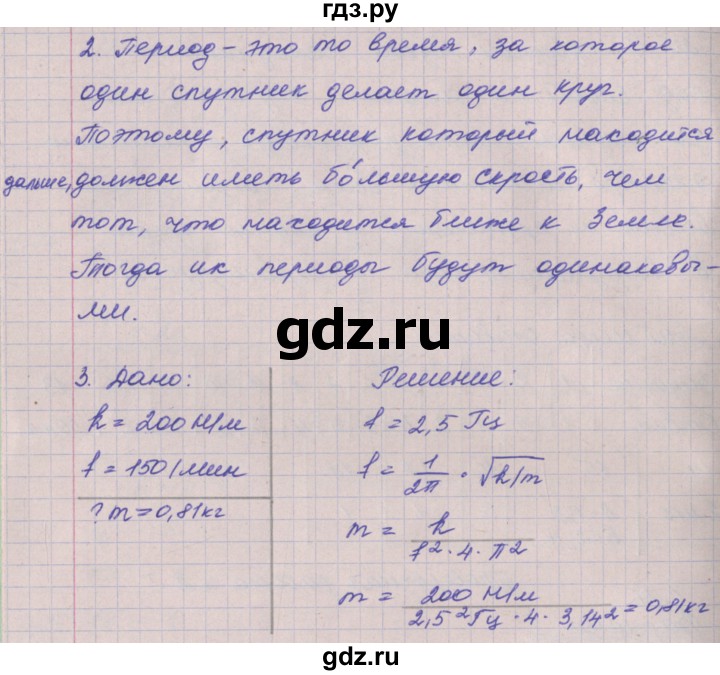 гдз.ру
2. Период - это то время, за которое
один спутник делает один круг.
Поэтому, спутник который находится
дальше, должен иметь бо́льшую скрость, чем
тот, что находится ближе к Земле.
Тогда их периоды будут одинаковы-
ми.
gdz.ru
3. Дано:
k = 200 Н/м
f = 150/мин
? m = 0,81 кг
Решение:
f = 2,5 Гц
f = 1/2π · √k/m
m = k / f² · 4 · π²
m = 200 Н/м / 2,5² Гц · 4 · 3,14² = 0,81 кг
gdz.ru